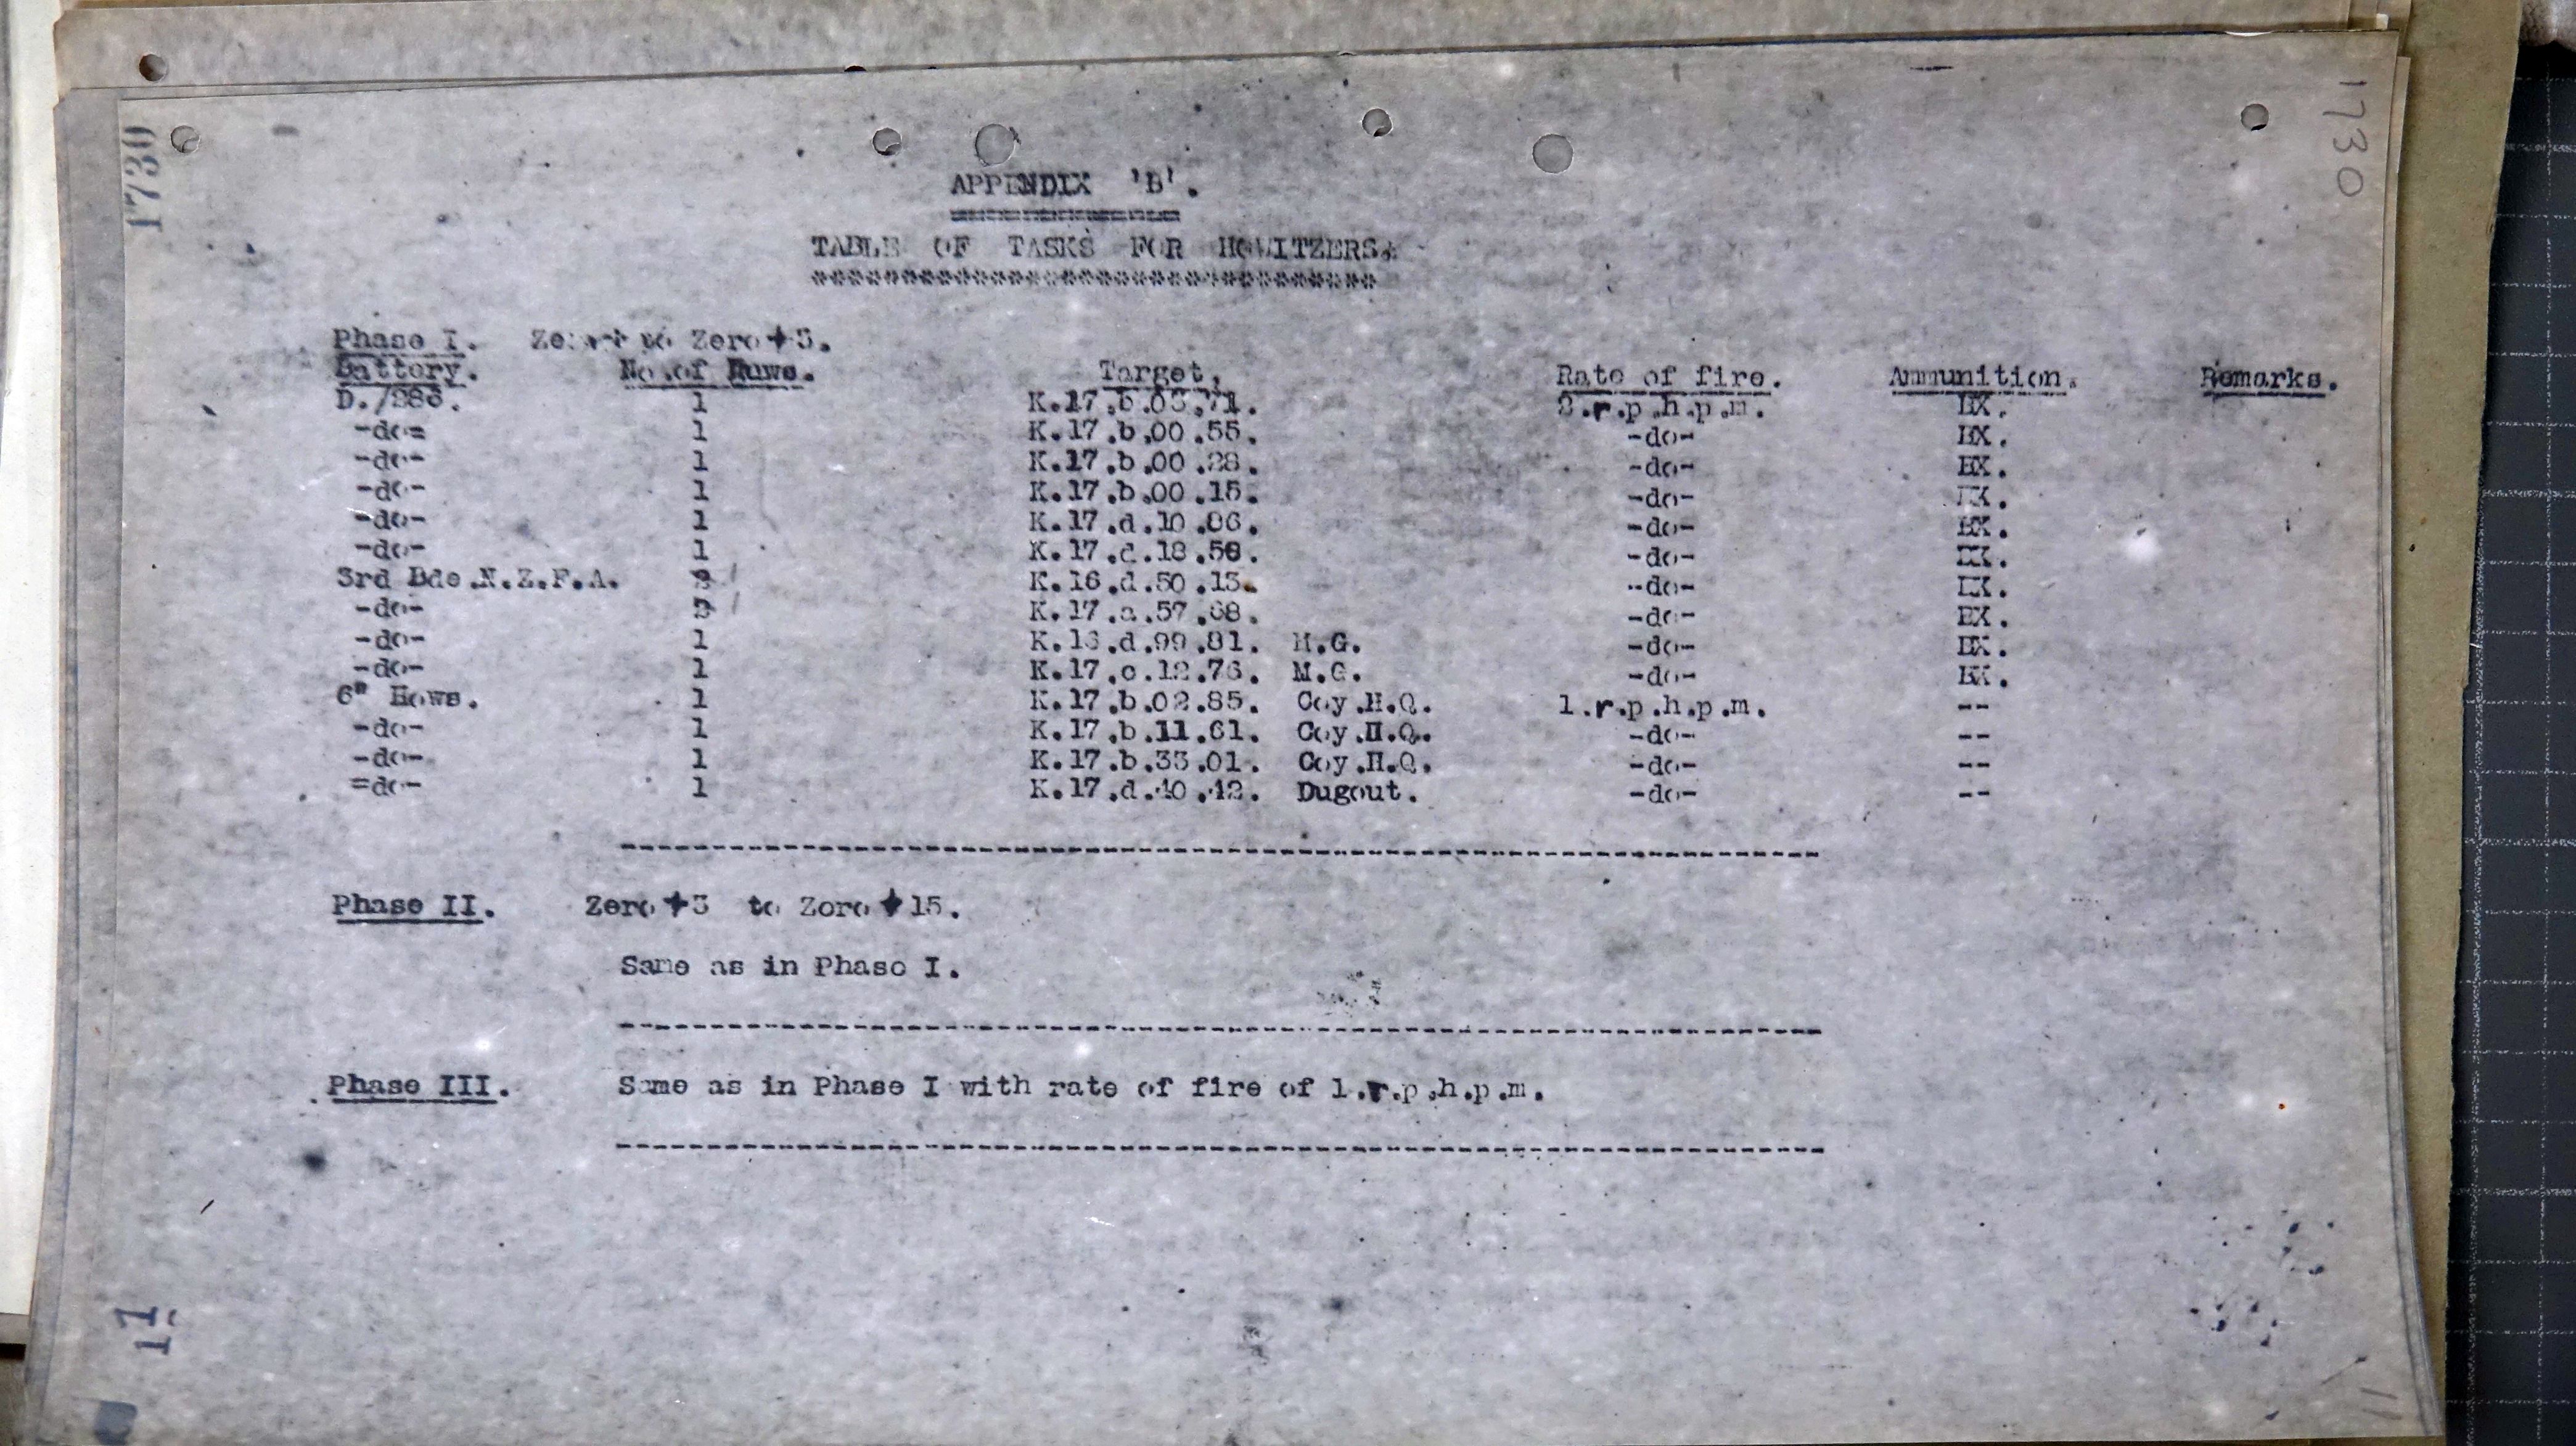 1730
1730
APPENDIX 'B'.
TABLE OF TASKS FOR HOWITZERS.
Phase I. Zero to Zero+3.
Battery. No.of Hows. Target. Rate of fire. Ammunition. Remarks.
D./286. 1 K.17.b.03.71. r.p.h.p.m. BX.
-do= 1 K.17.b.00.55. -do- BX.
-do- 1 K.17.b.00.28. -do- BX.
-do- 1 K.17.b.00.15. -do- BX.
-do- 1 K.17.d.10.86. -do- BX.
-do- 1 K.17.d.18.56. -do- BX.
3rd Bde.N.Z.F.A. K.16.d.50.13. -do- BX.
-do- K.17.a.57.68. -do- BX.
-do- 1 K.16.d.99.81. M.G. -do- BX.
-do- 1 K.17.c.12.76. M.G. -do- BX.
6" Hows. 1 K.17.b.02.85. Coy.H.Q. 1.r.p.h.p.m. --
-do- 1 K.17.b.11.61. Coy.H.Q. -do- --
-do- 1 K.17.b.33.01. Coy.H.Q. -do- --
=do- 1 K.17.d.40.42. Dugout. -do- --
Phase II. Zero+3 to Zero+15.
Same as in Phase I.
Phase III. Same as in Phase I with rate of fire of 1.r.p.h.p.m.
11
11